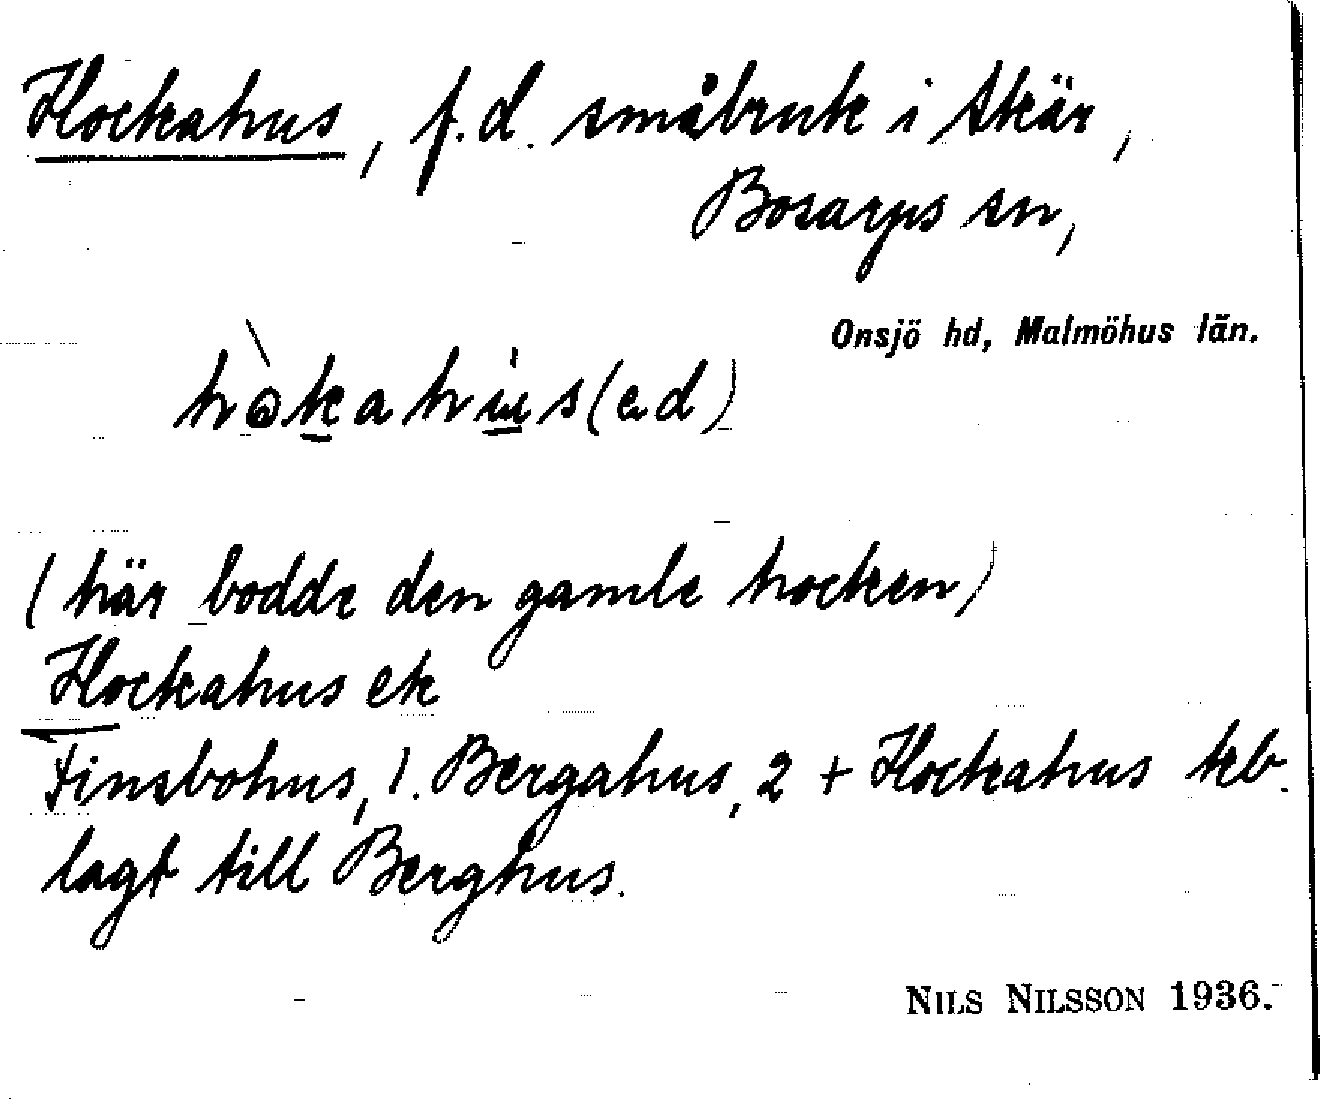 Hockahus, f.d. småbruk i Skär,
Bosarps sn,
Onsjö hd, Malmöhus län.
(här bodde den gamle hocken)
Hockahus ek
Finsbohus, 1. Bergahus, 2 + Hockahus kb.
lagt till Berghus.
NILS NILSSON 1936.